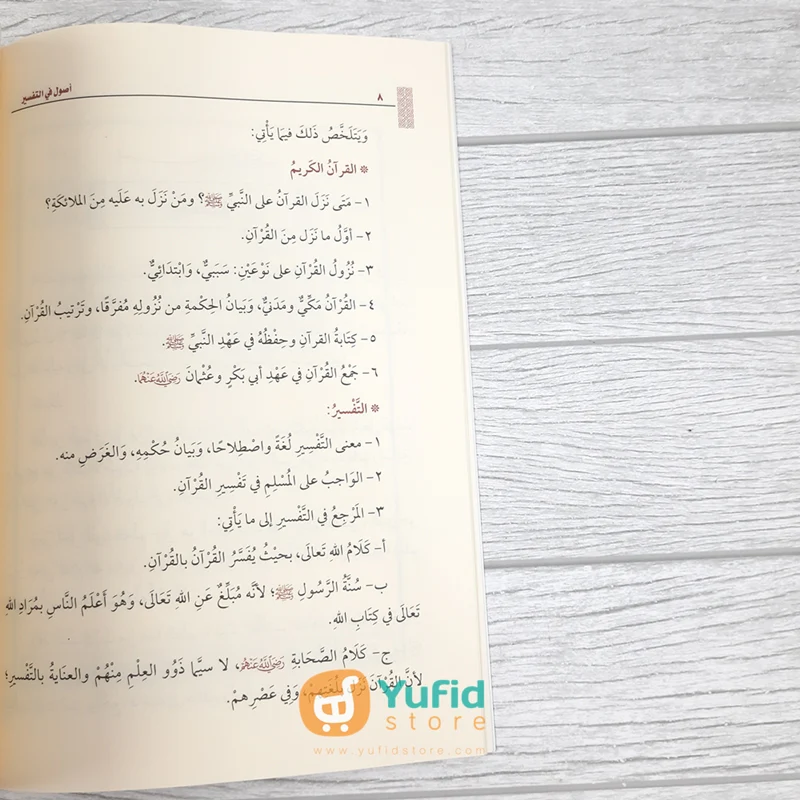 ٨
أصول في التفسير
وَيَتَلَخَّصُ ذَلكَ فيمَا يَأْتِي:
* القرآنُ الكَريمُ
١- مَتَى نَزَلَ القرآنُ على النَّبيِّ ﷺ؟ ومَنْ نَزَلَ به عَلَيه مِنَ الملائكَةِ؟
٢- أوَّلُ ما نَزَل مِنَ القُرْآنِ.
٣- نُزُولُ القُرْآنِ على نَوْعَيْنِ: سَبَبيٌّ، وَابْتدَائِيٌّ.
٤- القُرْآنُ مَكِّيٌّ ومَدَنيٌّ، وَبَيانُ الحِكْمةِ من نُزُولِهِ مُفرَّقًا، وتَرْتيبُ القُرْآنِ.
٥- كِتَابةُ القرآنِ وحِفْظُهُ في عَهْدِ النَّبيِّ ﷺ.
٦- جَمْعُ القُرْآنِ في عَهْدِ أبي بَكْرٍ وعُثْمانَ رَضِيَ اللهُ عَنْهُمَا.
* التَّفْسيرُ:
١- معنى التَّفْسيرِ لُغَةً واصْطِلاحًا، وَبَيانُ حُكْمِهِ، وَالغَرَضِ منه.
٢- الوَاجبُ على المُسْلِمِ في تَفْسِيرِ القُرْآنِ.
٣- المَرْجِعُ في التَّفْسيرِ إلى ما يَأْتِي:
أ- كَلَامُ اللهِ تَعالَى، بحيْثُ يُفَسَّرُ القُرْآنُ بالقُرْآنِ.
ب- سُنَّةُ الرَّسُولِ ﷺ؛ لأنَّه مُبَلِّغٌ عَنِ اللهِ تَعَالَى، وَهُوَ أَعْلَمُ النَّاسِ بمُرَادِ اللهِ
تَعَالَى في كِتَابِ اللهِ.
ج- كَلَامُ الصَّحَابةِ رَضِيَ اللهُ عَنْهُمْ، لا سيَّما ذَوُو العِلْمِ مِنْهُمْ والعنايةُ بالتَّفْسيرِ؛
لأنَّ القُرْآنَ نَزَلَ بِلُغَتِهِمْ، وَفِي عَصْرِهِمْ.
Yufid
store
www.yufidstore.com